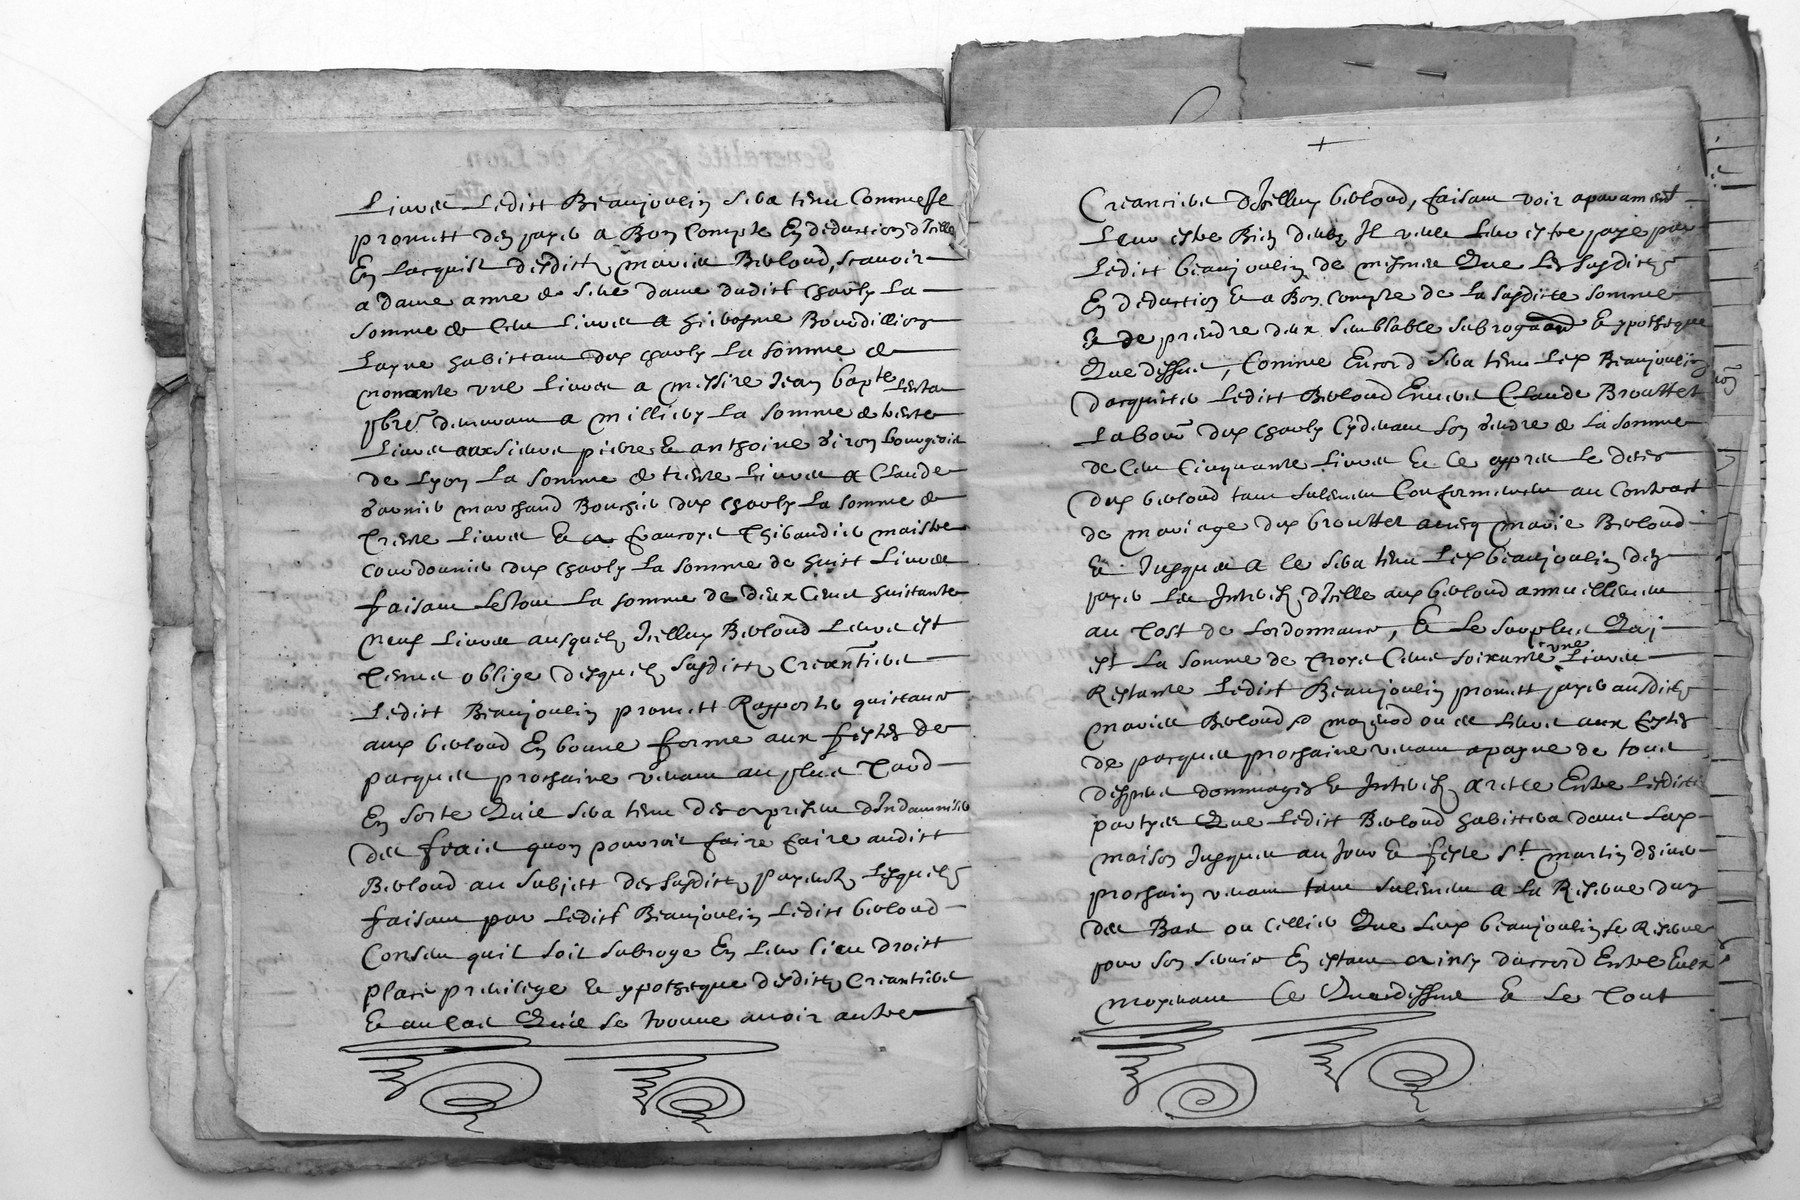 Livres Leditt Beaujoulin sera tenu Comme Jl
promett den payer a Bon Compte En deduction dIcelle
En Lacquist desditts maries Berloud, scavoir
a dame anne de dame dudict Charly La
somme de Cent Livres a Bourdillion
Layne habittant dux Charly La somme de
nonante une Livres a messire Jean bapte
pbre demeurant a Millery La somme de trente
Livres aux sieurs pierre & anthoine bourgeois
de Lyon La somme de trente Livres a Claude
marchand Boucher dux Charly La somme de
trente Livres & a francoys Thibaudier maistre
Courdounier dux Charly La somme de huitt Livres
faisant Le tout La somme de deux Cents huittante
neuf Livres ausquels Icelluy Berloud Leurs est
tenu oblige desquels susditts Creantiers
Leditt Beaujoulin promett Rapporter quittance
aux berloud En bonne forme aux festes de
pasques prochaine venant au plus Tard
En sorte Quil sera tenu des a present dIndamniser
des frais quon pourroit faire faire auditt
Berloud au Subjett des susditts payements Lesquels
faisant par Leditt Beaujoulin Leditt berloud
Consent quil soit subroge En Leur lieu droitt
place privilege & ypotheque desditts Creantiers
& au Cas Quil se trouve avoir autre
+
Creancier dIcelluy berloud, faisant voir aparament
Leur estre Bien deub Il veut Leur estre paye par
Leditt beaujoulin de mesmes Que Les susditts
En deduction & a Bon compte de La susditte somme
& de prendre deux semblable subrogaon & ypotheque
Que dessus, Comme Encord sera tenu Lex Beaujoulin
dacquitter Leditt Berloud Envers Claude Brouttet
Labour dux Charly Cydevant Son gendre de La somme
de Cent Cinquante Livres & Ce appres Le deces
dux berloud tant seulement Conformement au Contract
de mariage dux brouttet avecq marie Berloud
& Jusques a Ce sera tenu Lex beaujoulin den
payer Les Interests dIcelle aux berloud annuellement
au tost de Lordonnance, & Le Surplus Quj
est La somme de troys Cents soixante une Livres
Restante Leditt Beaujoulin promett payer ausdits
maries Berloud & ou es Leurs aux festes
de pasques prochaine venant a payne de tous
despens dommages & Interests areste Entre Lesditts
partyes Que Leditt Berloud habittera dans Lax
maison Jusques au Jour & feste St martin dhiver
prochain venant tant seulement a La Reserve dun
des Bas ou Cellier Que Lex beaujoulin se Reserve
pour son service En estant ainsy daccord Entre Eux
moyenant Ce Que dessus & Le Tout